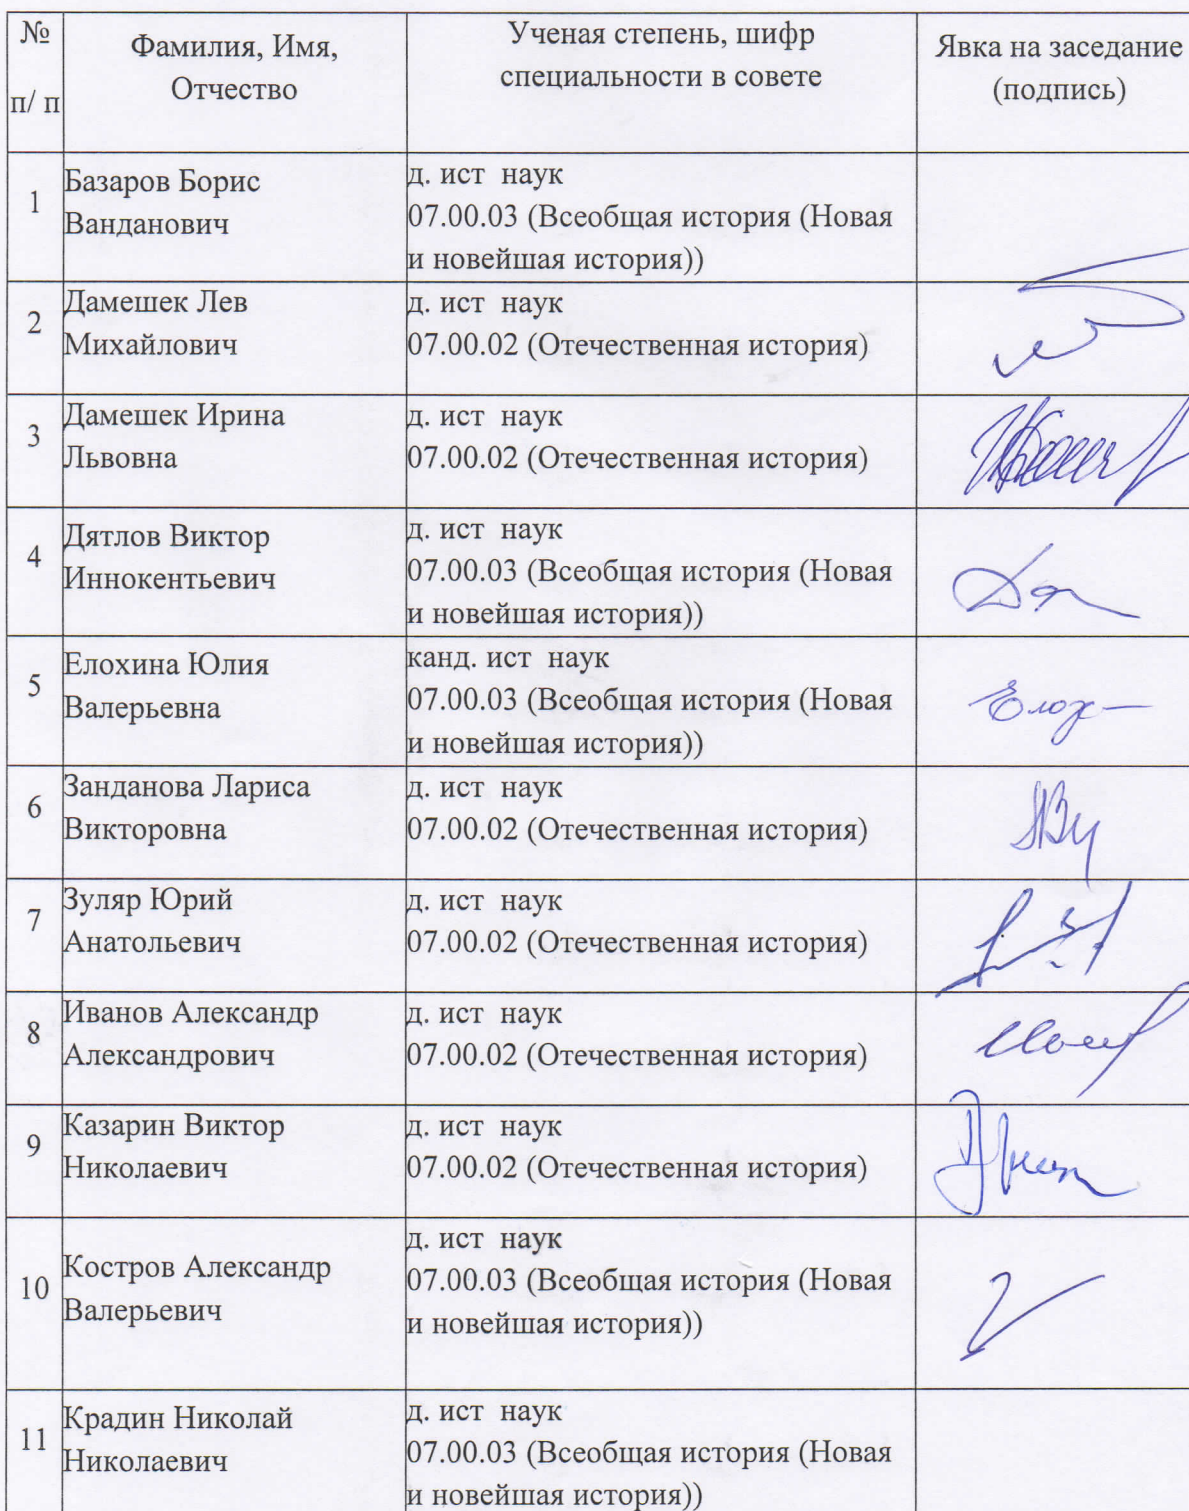 №
п/ п
Фамилия, Имя,
Отчество
Ученая степень, шифр
специальности в совете
Явка на заседание
(подпись)
1
Базаров Борис
Ванданович
д. ист наук
07.00.03 (Всеобщая история (Новая
и новейшая история))
2
Дамешек Лев
Михайлович
д. ист наук
07.00.02 (Отечественная история)
3
Дамешек Ирина
Львовна
д. ист наук
07.00.02 (Отечественная история)
4
Дятлов Виктор
Иннокентьевич
д. ист наук
07.00.03 (Всеобщая история (Новая
и новейшая история))
5
Елохина Юлия
Валерьевна
канд. ист наук
07.00.03 (Всеобщая история (Новая
и новейшая история))
6
Занданова Лариса
Викторовна
д. ист наук
07.00.02 (Отечественная история)
7
Зуляр Юрий
Анатольевич
д. ист наук
07.00.02 (Отечественная история)
8
Иванов Александр
Александрович
д. ист наук
07.00.02 (Отечественная история)
9
Казарин Виктор
Николаевич
д. ист наук
07.00.02 (Отечественная история)
10
Костров Александр
Валерьевич
д. ист наук
07.00.03 (Всеобщая история (Новая
и новейшая история))
11
Крадин Николай
Николаевич
д. ист наук
07.00.03 (Всеобщая история (Новая
и новейшая история))